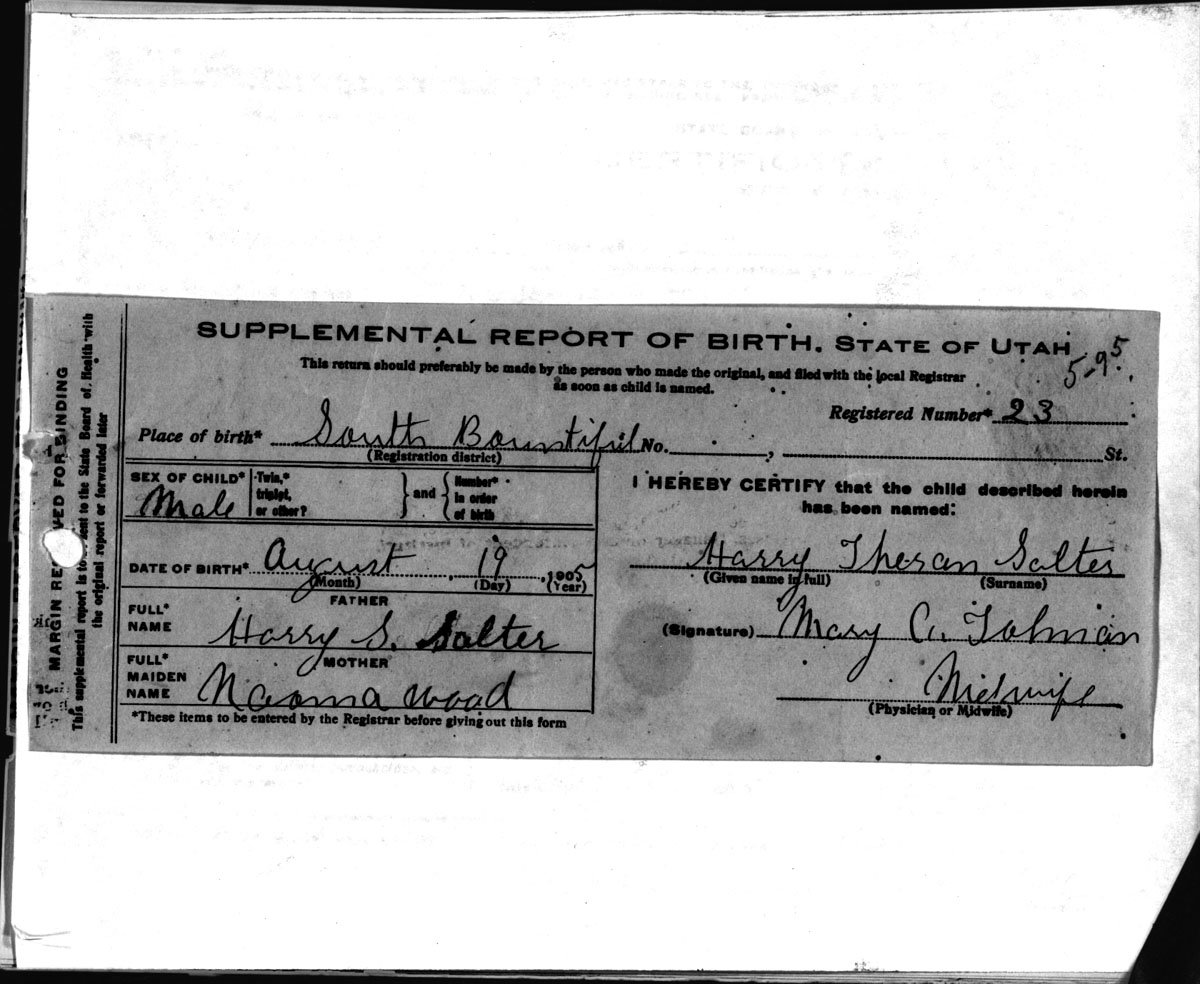 SUPPLEMENTAL REPORT OF BIRTH. STATE OF UTAH
5-95
This return should preferably be made by the person who made the original, and filed with the local Registrar
as soon as child is named.
Registered Number* 23
Place of birth* South Bountiful No. , St.
(Registration district)
SEX OF CHILD* Male
Twin,* triplet, or other? } and { Number* in order of birth
I HEREBY CERTIFY that the child described herein
has been named:
DATE OF BIRTH* August 19, 1905
(Month) (Day) (Year)
Harry Theran Salter
(Given name in full) (Surname)
FATHER
FULL* NAME Harry S. Salter
(Signature) Mary C. Tolman
MOTHER
FULL* MAIDEN NAME Naoma Wood
Midwife
(Physician or Midwife)
*These items to be entered by the Registrar before giving out this form
MARGIN RESERVED FOR BINDING
This supplemental report is to be sent to the State Board of Health with
the original report or forwarded later